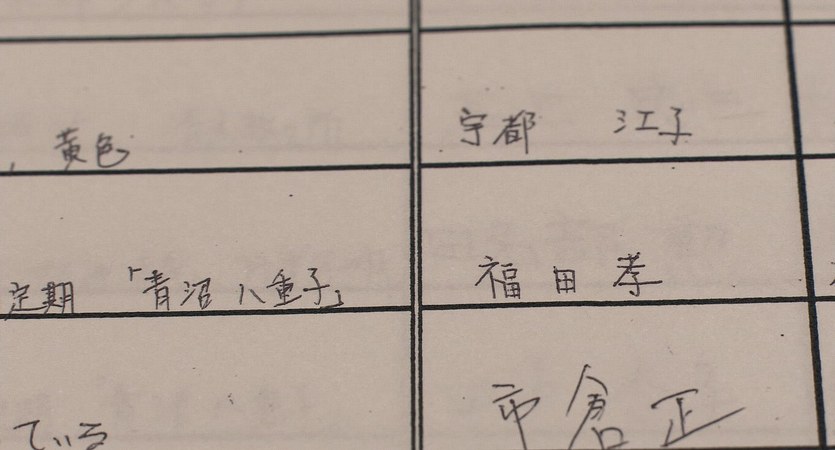 、黄色
宇都 江子
定期 「青沼八重子」
福田孝
ている
市倉正